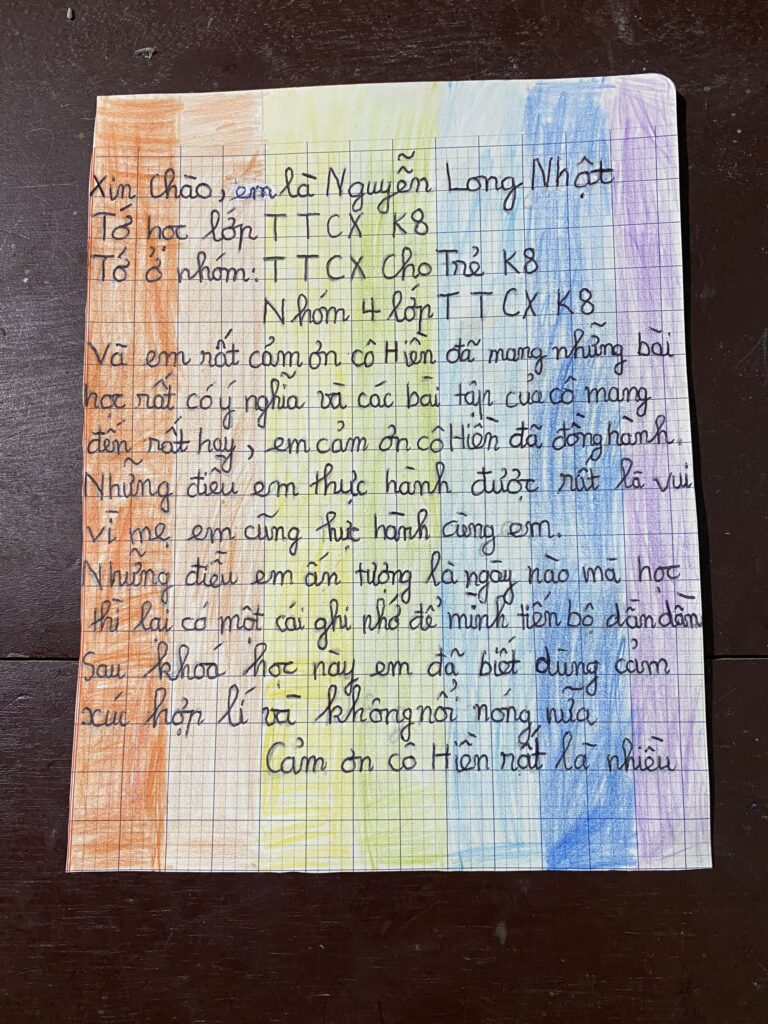 Xin chào, em là Nguyễn Long Nhật
Tớ học lớp T T C X K8
Tớ ở nhóm: T T C X Cho Trẻ K8
Nhóm 4 lớp T T C X K8
Và em rất cảm ơn cô Hiền đã mang những bài
học rất có ý nghĩa và các bài tập của cô mang
đến rất hay, em cảm ơn cô Hiền đã đồng hành.
Những điều em thực hành được rất là vui
vì mẹ em cũng thực hành cùng em.
Những điều em ấn tượng là ngày nào mà học
thì lại có một cái ghi nhớ để mình tiến bộ dần dần
Sau khoá học này em đã biết dùng cảm
xúc hợp lí và không nổi nóng nữa
Cảm ơn cô Hiền rất là nhiều